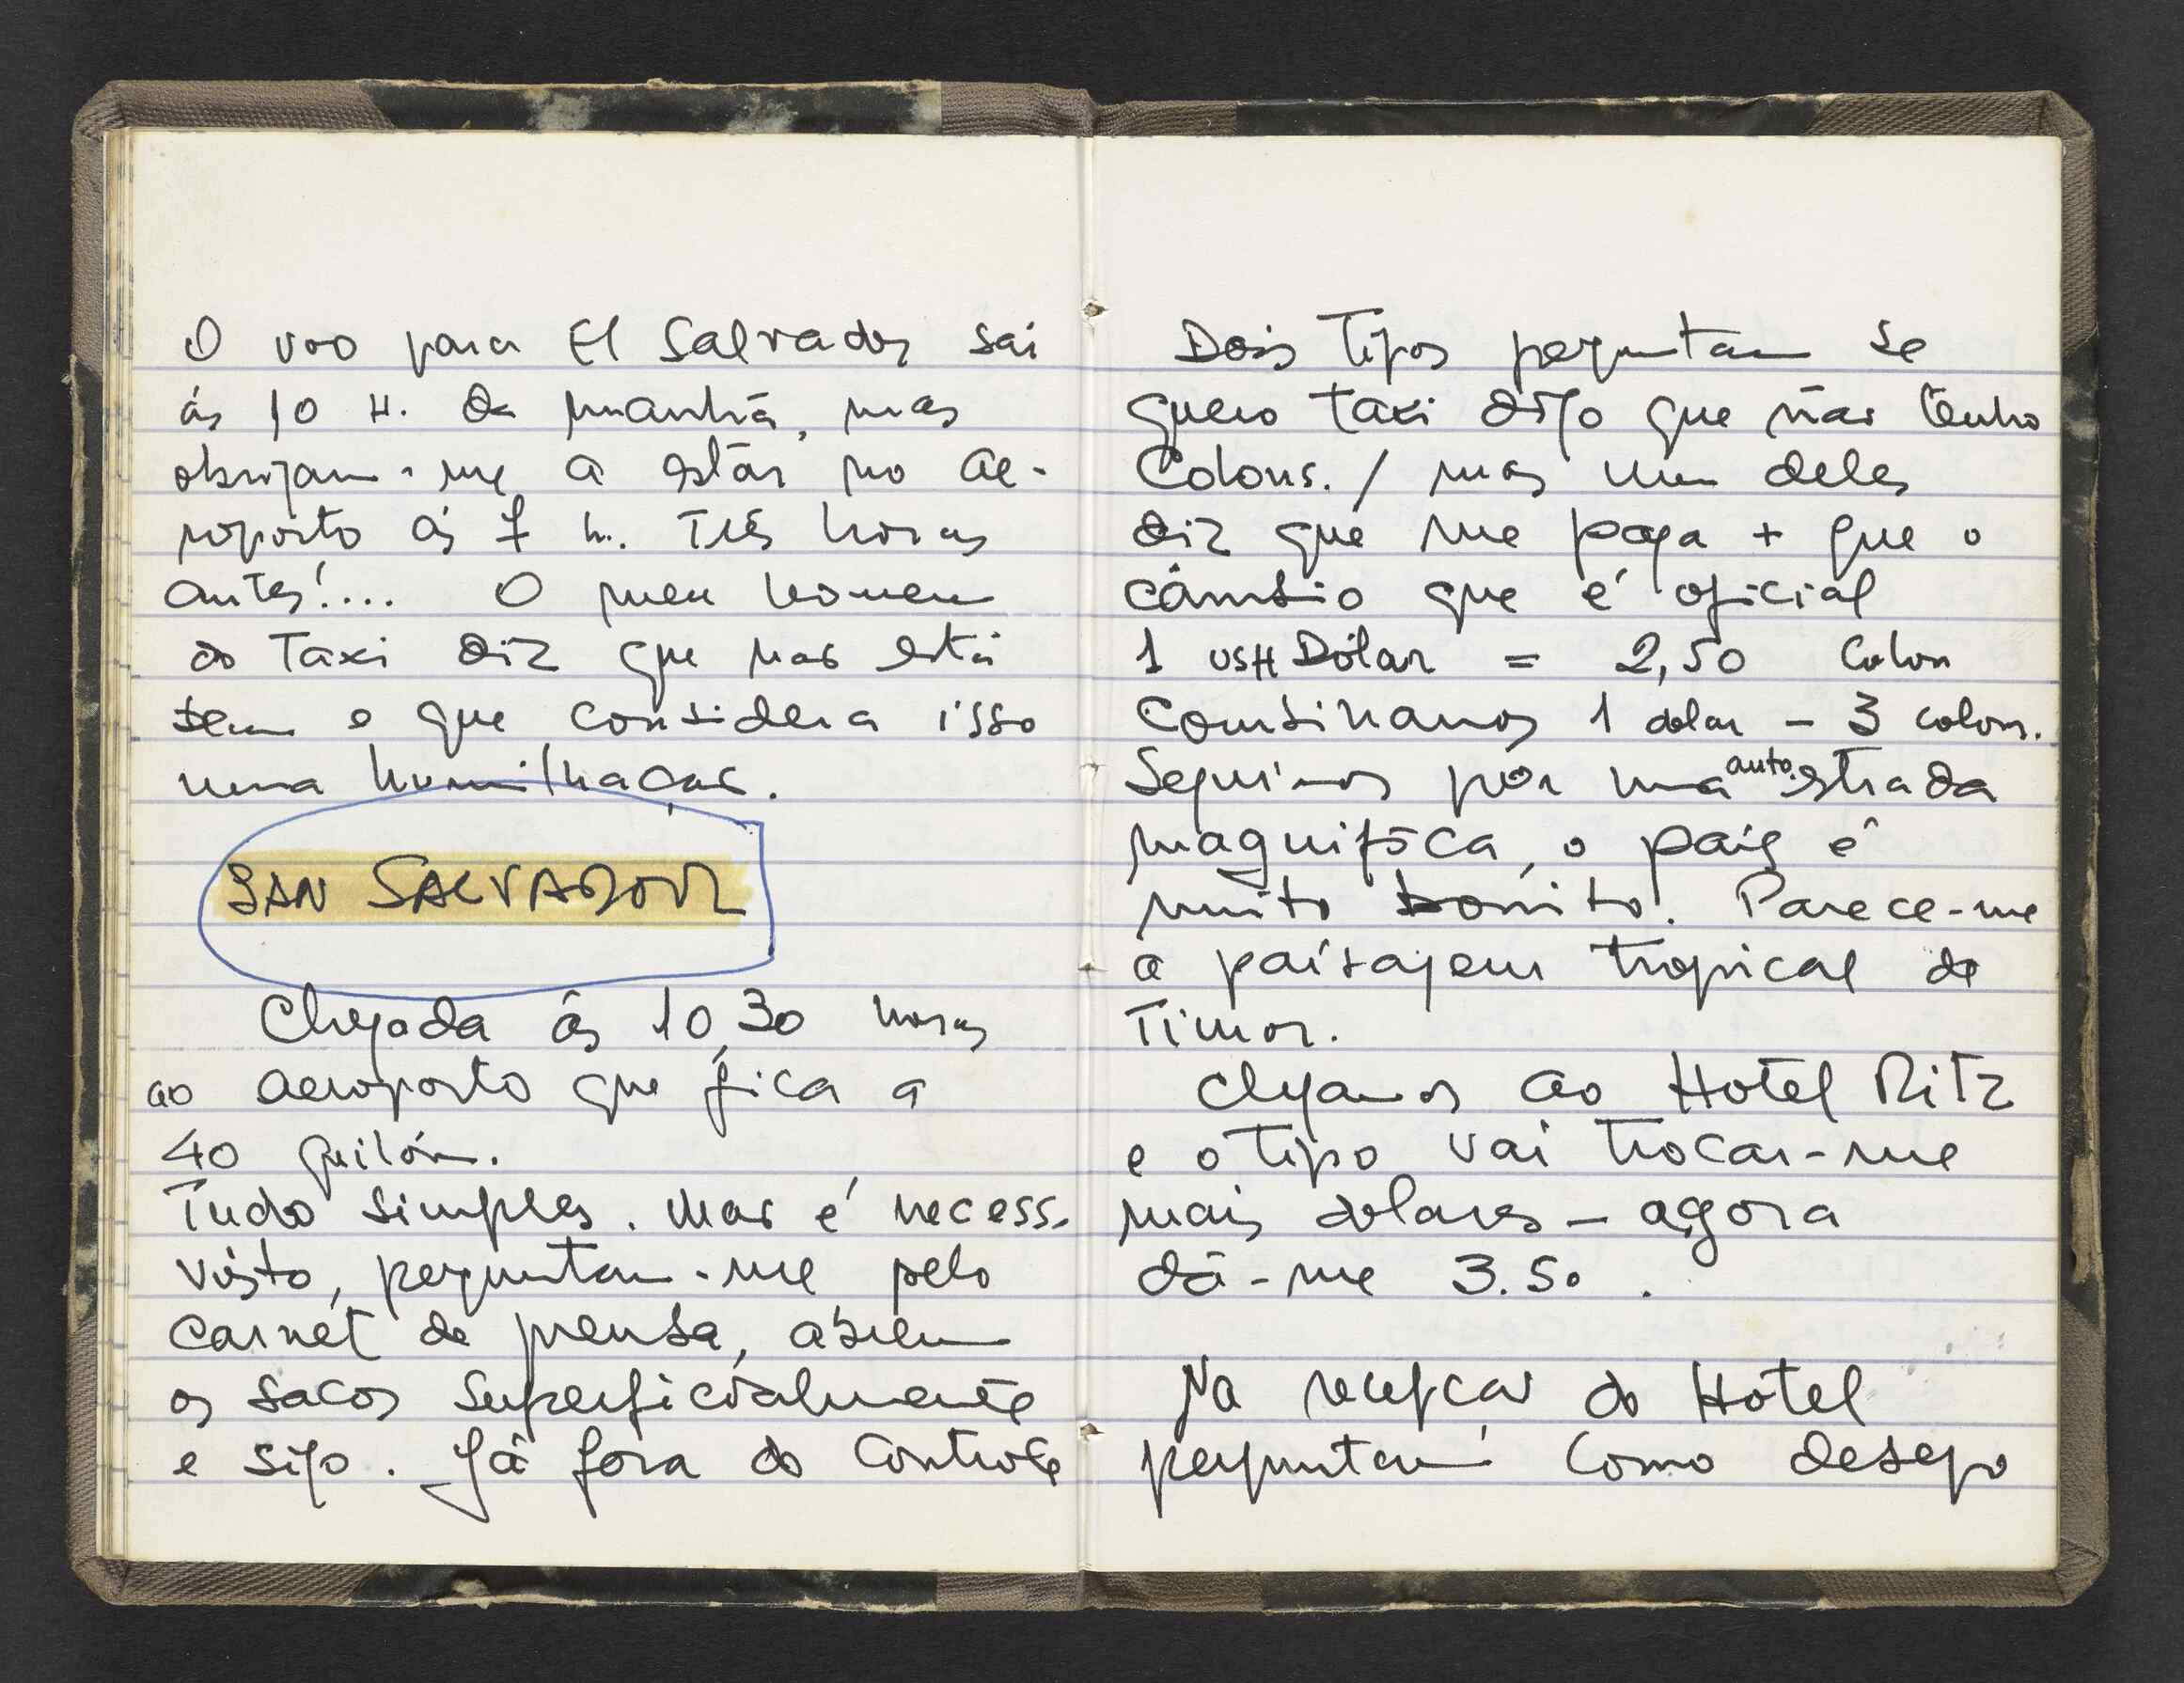 O voo para El Salvador sai
ás 10 H. da manhã, mas
obrigam-me a estár no ae-
roporto ás 7 h. Três horas
antes!.... O meu homem
do Taxi diz que nao está
bem e que considera isso
uma humilhaçao.
SAN SALVADOR
Chegada ás 10,30 horas
ao aeroporto que fica a
40 quilóm.
Tudo simples. Nao é necess.
visto, perguntam-me pelo
carnet de prensa, abrem
os sacos superficialmente
e sigo. Já fora do Controle
Dois Tipos perguntam se
quero taxi digo que não tenho
Colons. / mas um deles
diz que me paga + que o
câmbio que é oficial
1 USA Dólar = 2,50 Colon
Combinamos 1 dolar - 3 colons.
Seguimos por uma auto.estrada
magnifica, o país é
muito bonito! Parece-me
a paísagem tropical de
Timor.
Chegamos ao Hotel Ritz
e o Tipo vai trocar-me
mais dolares - agora
dá-me 3.50.
Na recepcao do Hotel
perguntam como desejo